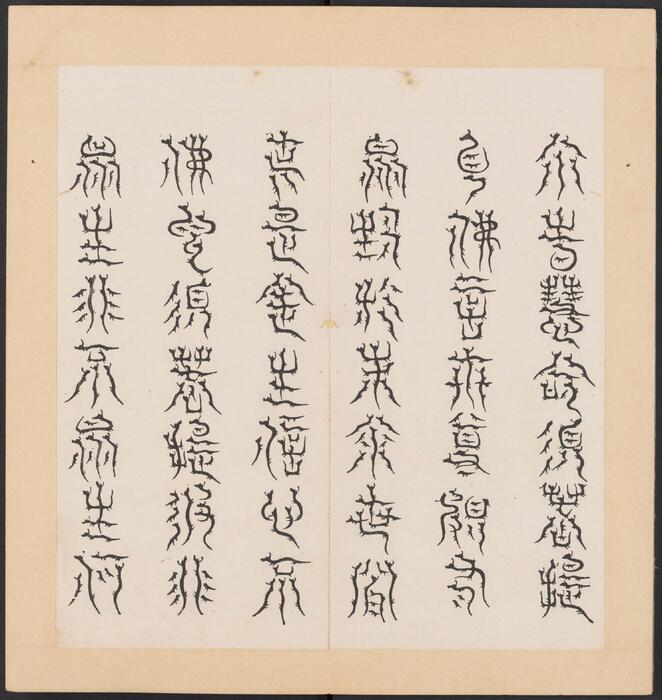 爾時慧命須菩提
白佛言世尊頗有
眾生於未來世聞
說是法生信心不
佛言須菩提彼非
眾生非不眾生何